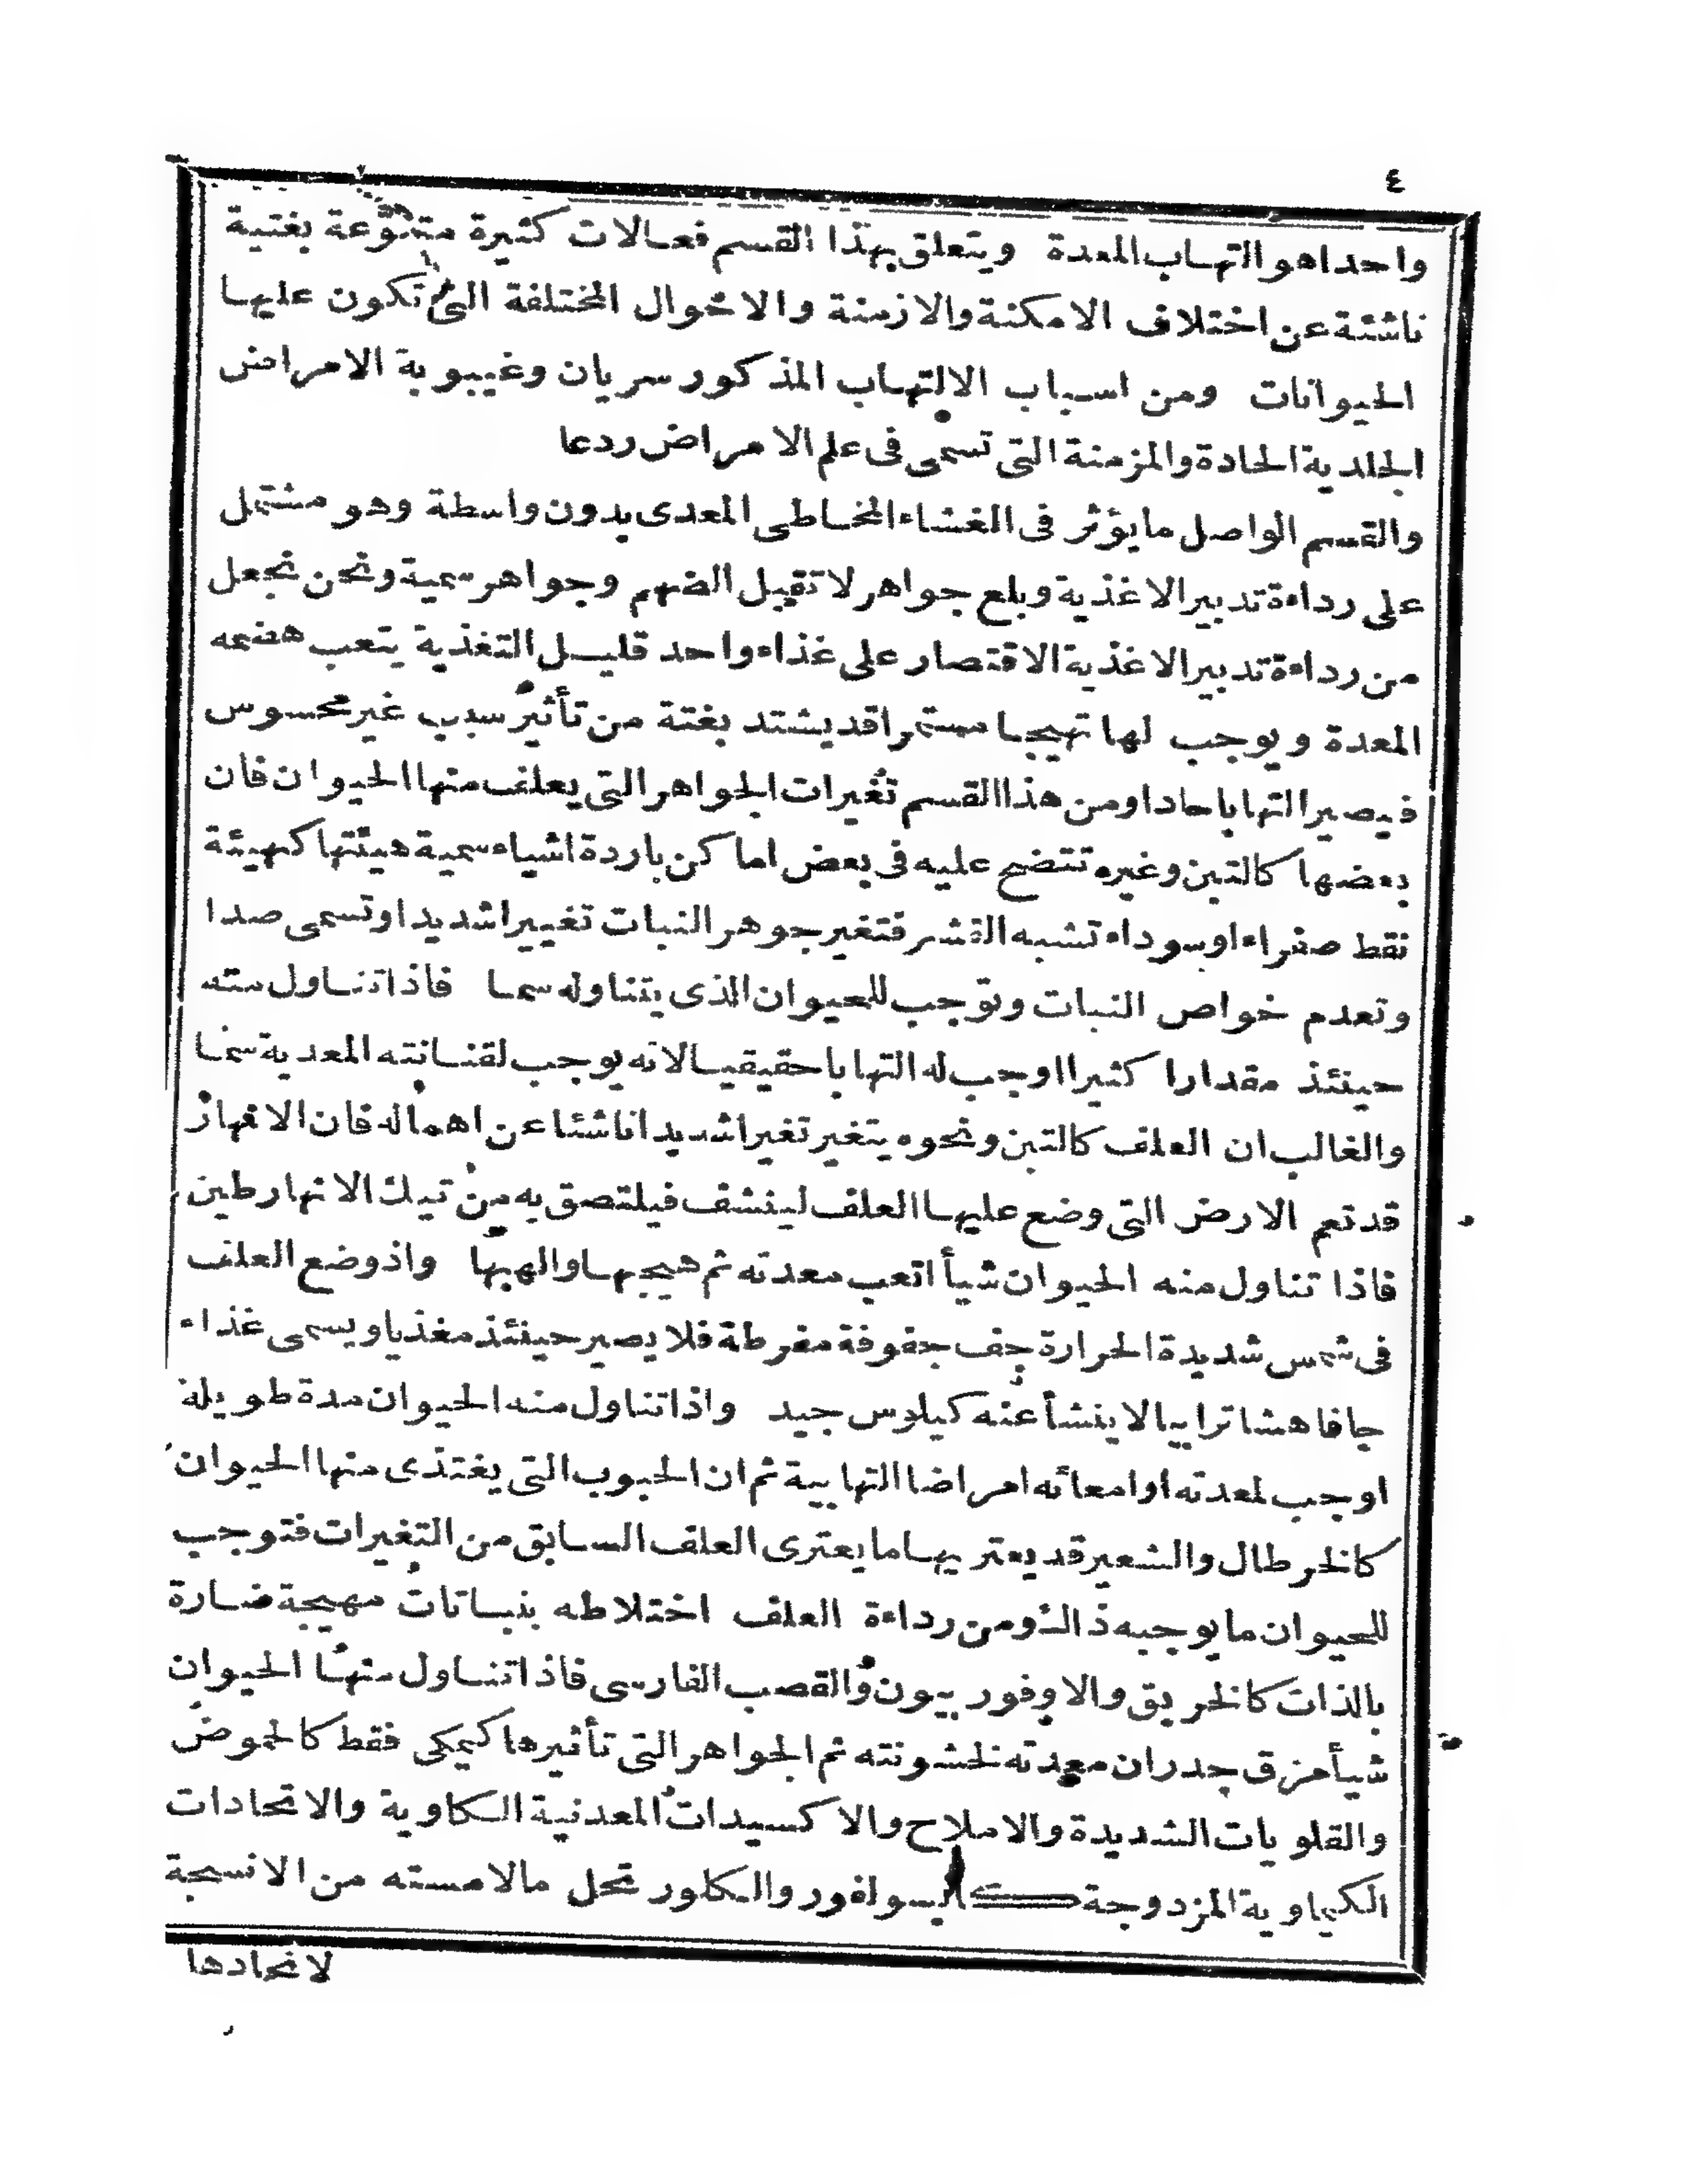 ٤
واحدا هو التهاب المعدة ويتعلق بهذا القسم فعالات كثيرة متنوعة بغتية
ناشئة عن اختلاف الامكنة والازمنة والاحوال المختلفة التى تكون عليها
الحيوانات ومن اسباب الالتهاب المذكور سريان وغيبوبة الامراض
الجلدية الحادة والمزمنة التى تسمى فى علم الامراض ردعا
والقسم الواصل ما يؤثر فى الغشاء المخاطى المعدى بدون واسطة وهو مشتمل
على رداءة تدبير الاغذية وبلع جواهر لا تقبل الهضم وجواهر سمية ونحن نجعل
من رداءة تدبير الاغذية الاقتصار على غذاء واحد قليل التغذية يتعب هضمه
المعدة ويوجب لها تهيجا مستمرا قد يشتد بغتة من تأثير سبب غير محسوس
فيصير التهابا حادا ومن هذا القسم تغيرات الجواهر التى يعلف منها الحيوان فان
بعضها كالتبن وغيره تتضح عليه فى بعض اماكن باردة اشياء سمية هيئتها كهيئة
نقط صفراء او سوداء تشبه القشر فتغير جوهر النبات تغييرا شديدا وتسمى صدا
وتعدم خواص النبات وتوجب للحيوان الذى يتناوله سما فاذا تناول منه
حينئذ مقدارا كثيرا اوجب له التهابا حقيقيا لانه يوجب لقناته المعدية سما
والغالب ان العلف كالتبن ونحوه يتغير تغيرا شديدا ناشئا عن اهماله فان الانهار
قد تعم الارض التى وضع عليها العلف لينشف فيلتصق به من تيك الانهار طين
فاذا تناول منه الحيوان شيأ اتعب معدته ثم هيجها والهبها واذ وضع العلف
فى شمس شديدة الحرارة جف جفوفة مفرطة فلا يصير حينئذ مغذيا ويسمى غذاء
جافا هشا ترابيا لا ينشأ عنه كيلوس جيد واذا تناول منه الحيوان مدة طويلة
اوجب لمعدته او امعائه امراضا التهابية ثم ان الحبوب التى يغتذى منها الحيوان
كالخرطال والشعير قد يعتريها ما يعترى العلف السابق من التغيرات فتوجب
للحيوان ما يوجبه ذالك ومن رداءة العلف اختلاطه بنباتات مهيجة ضارة
بالذات كالخربق والاوفوربيون والقصب الفارسى فاذا تناول منها الحيوان
شيأ مزق جدران معدته لخشونته ثم الجواهر التى تأثيرها كيمكى فقط كالحموض
والقلويات الشديدة والاملاح والاكسيدات المعدنية الكاوية والاتحادات
الكيماوية المزدوجة كالسولفور والكلور تحل ما لامسته من الانسجة
لاتحادها